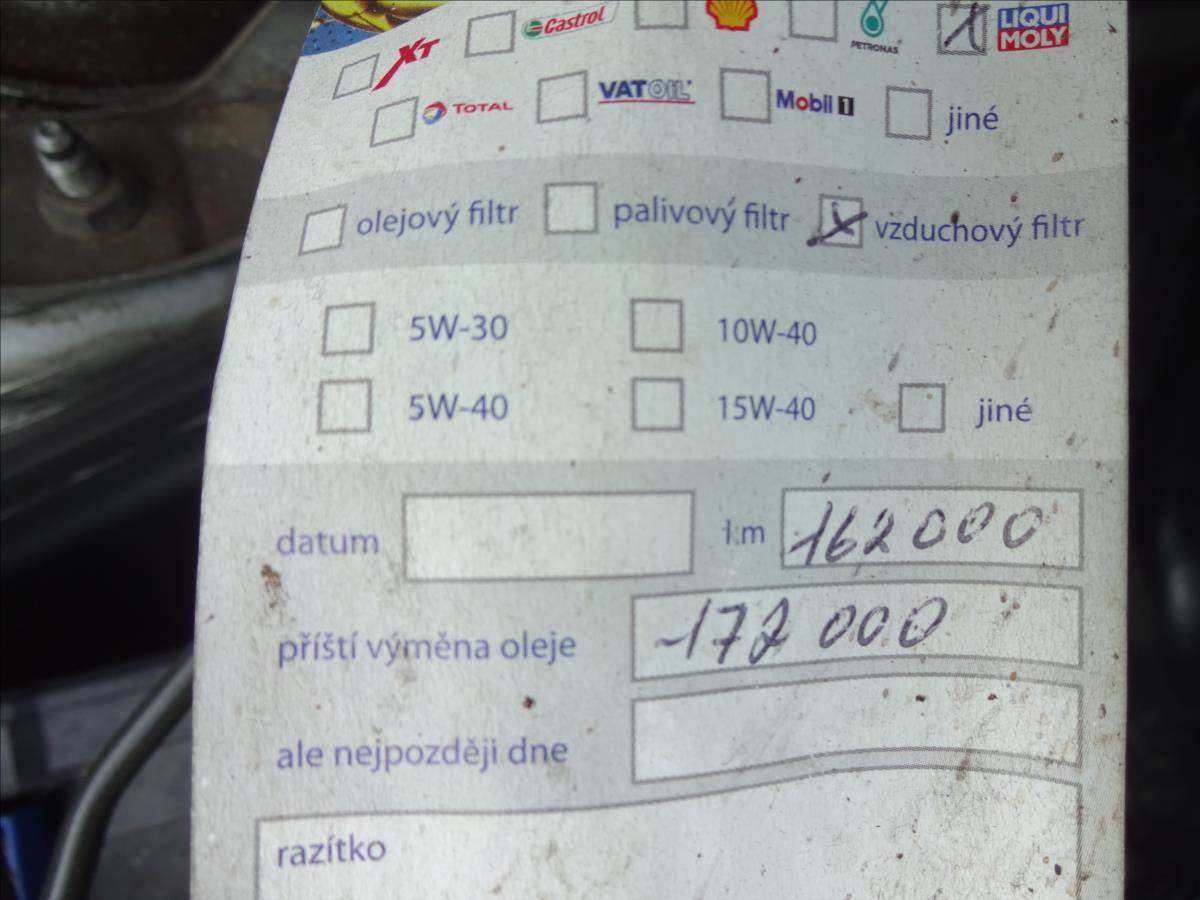 Castrol PETRONAS LIQUI MOLY
XT
TOTAL VATOIL Mobil 1 jiné
olejový filtr palivový filtr vzduchový filtr
5W-30 10W-40
5W-40 15W-40 jiné
datum km 162 000
příští výměna oleje 172 000
ale nejpozději dne
razítko